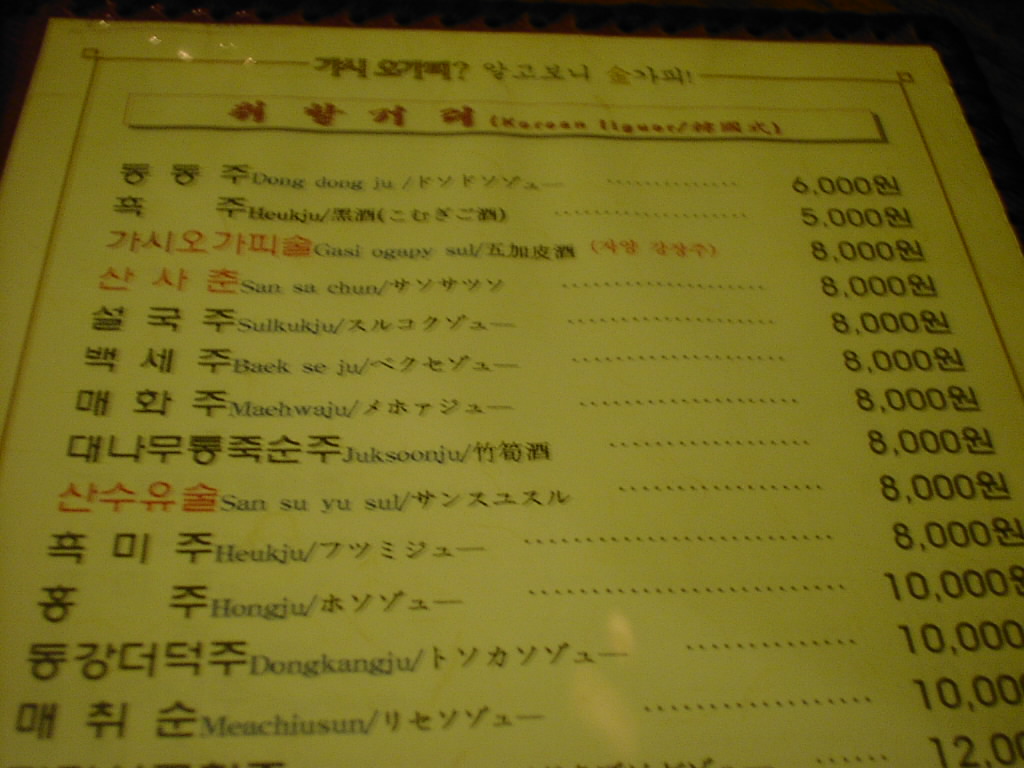 가시오가피? 알고보니 金가피!
취 할 거 리 (Korean liquor/韓國式)
동 동 주 Dong dong ju /ドソドソゾュー ············ 6,000원
흑 주 Heukju/黒酒(こむぎご酒) ············ 5,000원
가시오가피술 Gasi ogapy sul/五加皮酒 (자양 강장주) 8,000원
산 사 춘 San sa chun/サソサツソ ············ 8,000원
설 국 주 Sulkukju/スルコクゾュー ············ 8,000원
백 세 주 Baek se ju/ベクセゾュー ············ 8,000원
매 화 주 Maehwaju/メホァジュー ············ 8,000원
대나무통죽순주 Juksoonju/竹筍酒 ············ 8,000원
산수유술 San su yu sul/サンスユスル ············ 8,000원
흑 미 주 Heukju/フツミジュー ············ 8,000원
홍 주 Hongju/ホソゾュー ············ 10,000원
동강더덕주 Dongkangju/トソカソゾュー ············ 10,000
매 취 순 Meachiusun/リセソゾュー ············ 10,000
12,00